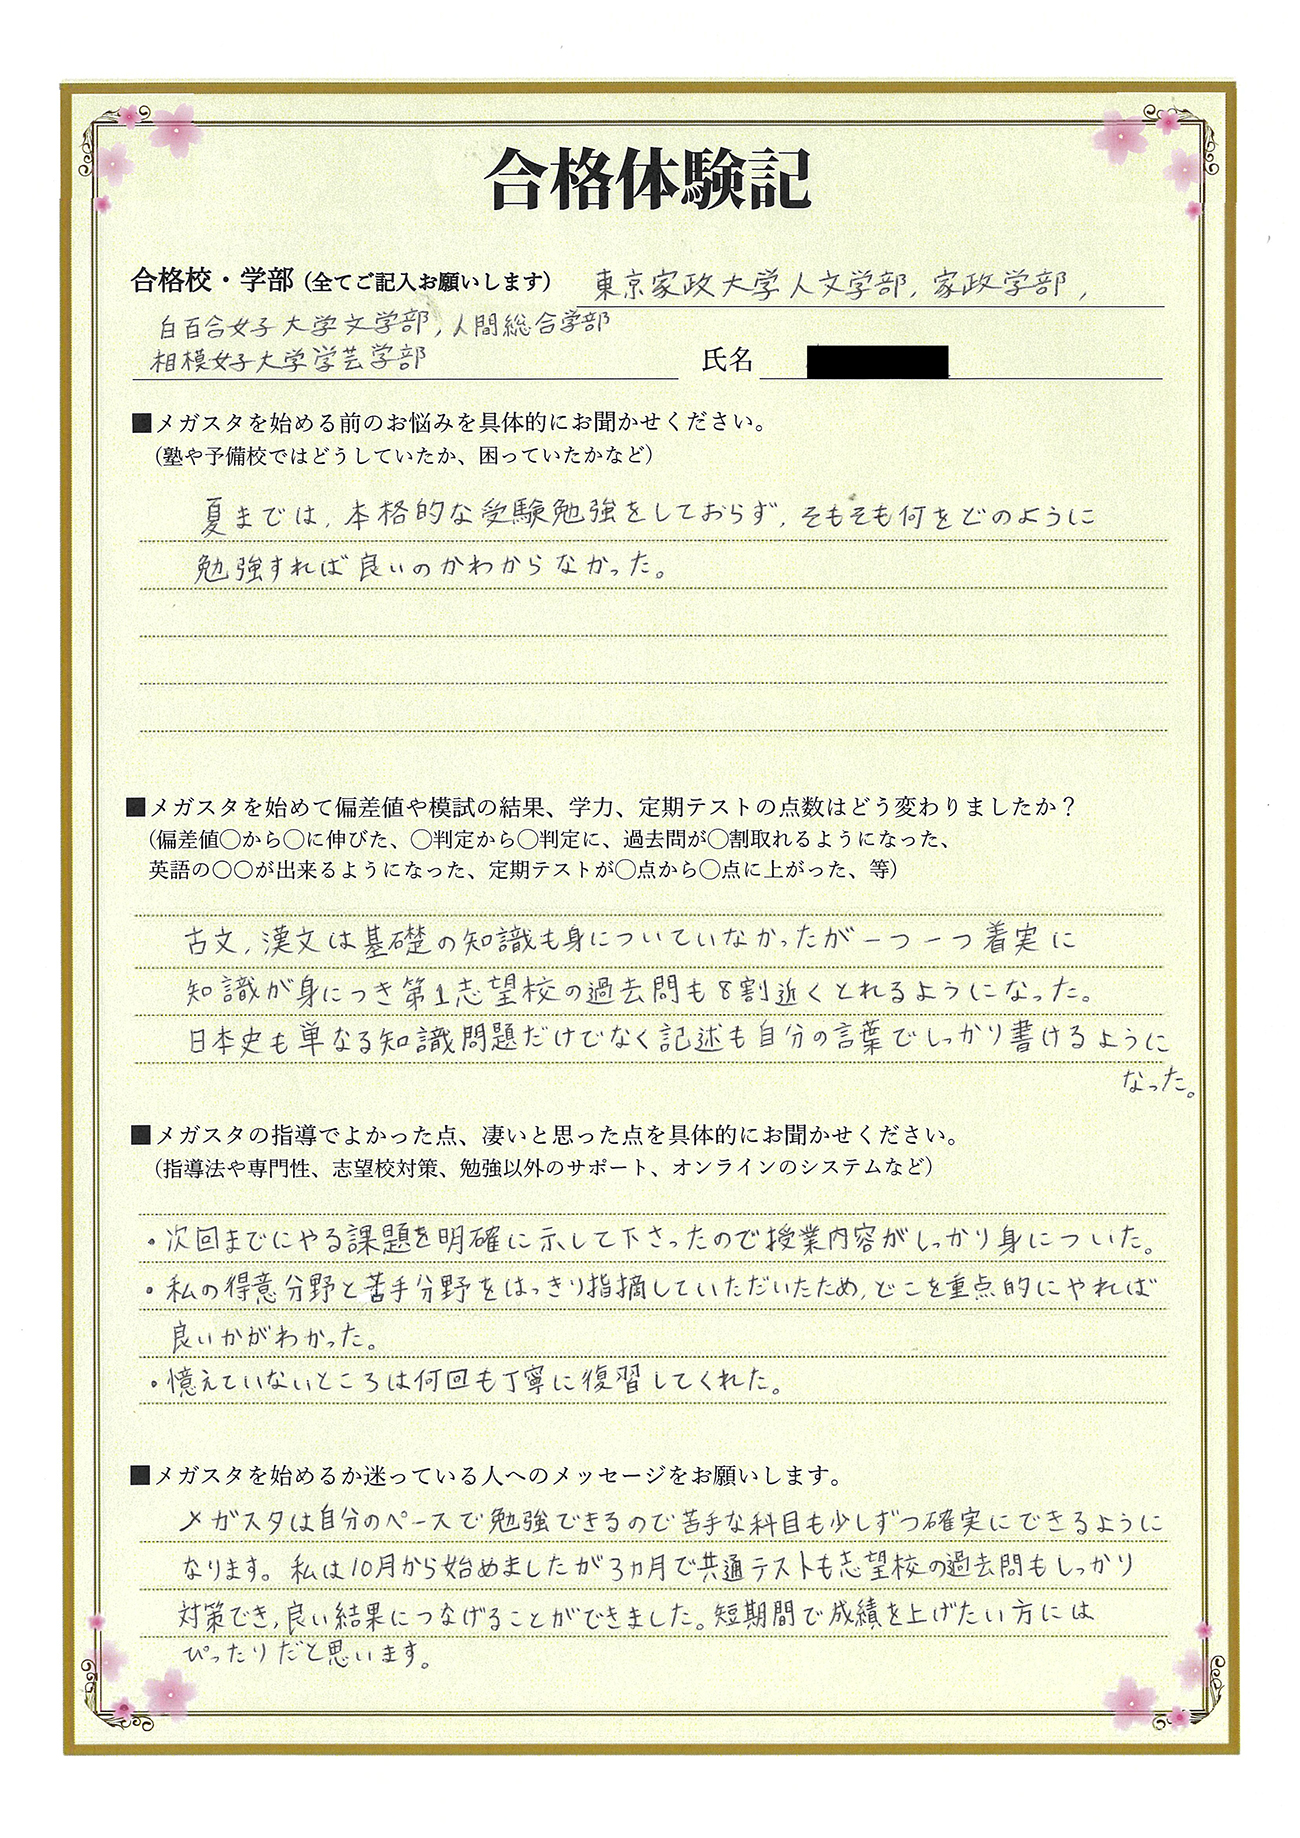 合格体験記
合格校・学部（全てご記入お願いします） 東京家政大学人文学部, 家政学部,
白百合女子大学文学部, 人間総合学部
相模女子大学学芸学部
氏名
■メガスタを始める前のお悩みを具体的にお聞かせください。
（塾や予備校ではどうしていたか、困っていたかなど）
夏までは, 本格的な受験勉強をしておらず, そもそも何をどのように
勉強すれば良いのかわからなかった。
■メガスタを始めて偏差値や模試の結果、学力、定期テストの点数はどう変わりましたか？
（偏差値〇から〇に伸びた、〇判定から〇判定に、過去問が〇割取れるようになった、
英語の〇〇が出来るようになった、定期テストが〇点から〇点に上がった、等）
古文, 漢文は基礎の知識も身についていなかったが一つ一つ着実に
知識が身につき第1志望校の過去問も8割近くとれるようになった。
日本史も単なる知識問題だけでなく記述も自分の言葉でしっかり書けるように
なった。
■メガスタの指導でよかった点、凄いと思った点を具体的にお聞かせください。
（指導法や専門性、志望校対策、勉強以外のサポート、オンラインのシステムなど）
・次回までにやる課題を明確に示して下さったので授業内容がしっかり身についた。
・私の得意分野と苦手分野をはっきり指摘していただいたため, どこを重点的にやれば
良いかがわかった。
・憶えていないところは何回も丁寧に復習してくれた。
■メガスタを始めるか迷っている人へのメッセージをお願いします。
メガスタは自分のペースで勉強できるので苦手な科目も少しずつ確実にできるように
なります。私は10月から始めましたが3ヵ月で共通テストも志望校の過去問もしっかり
対策でき, 良い結果につなげることができました。短期間で成績を上げたい方には
ぴったりだと思います。